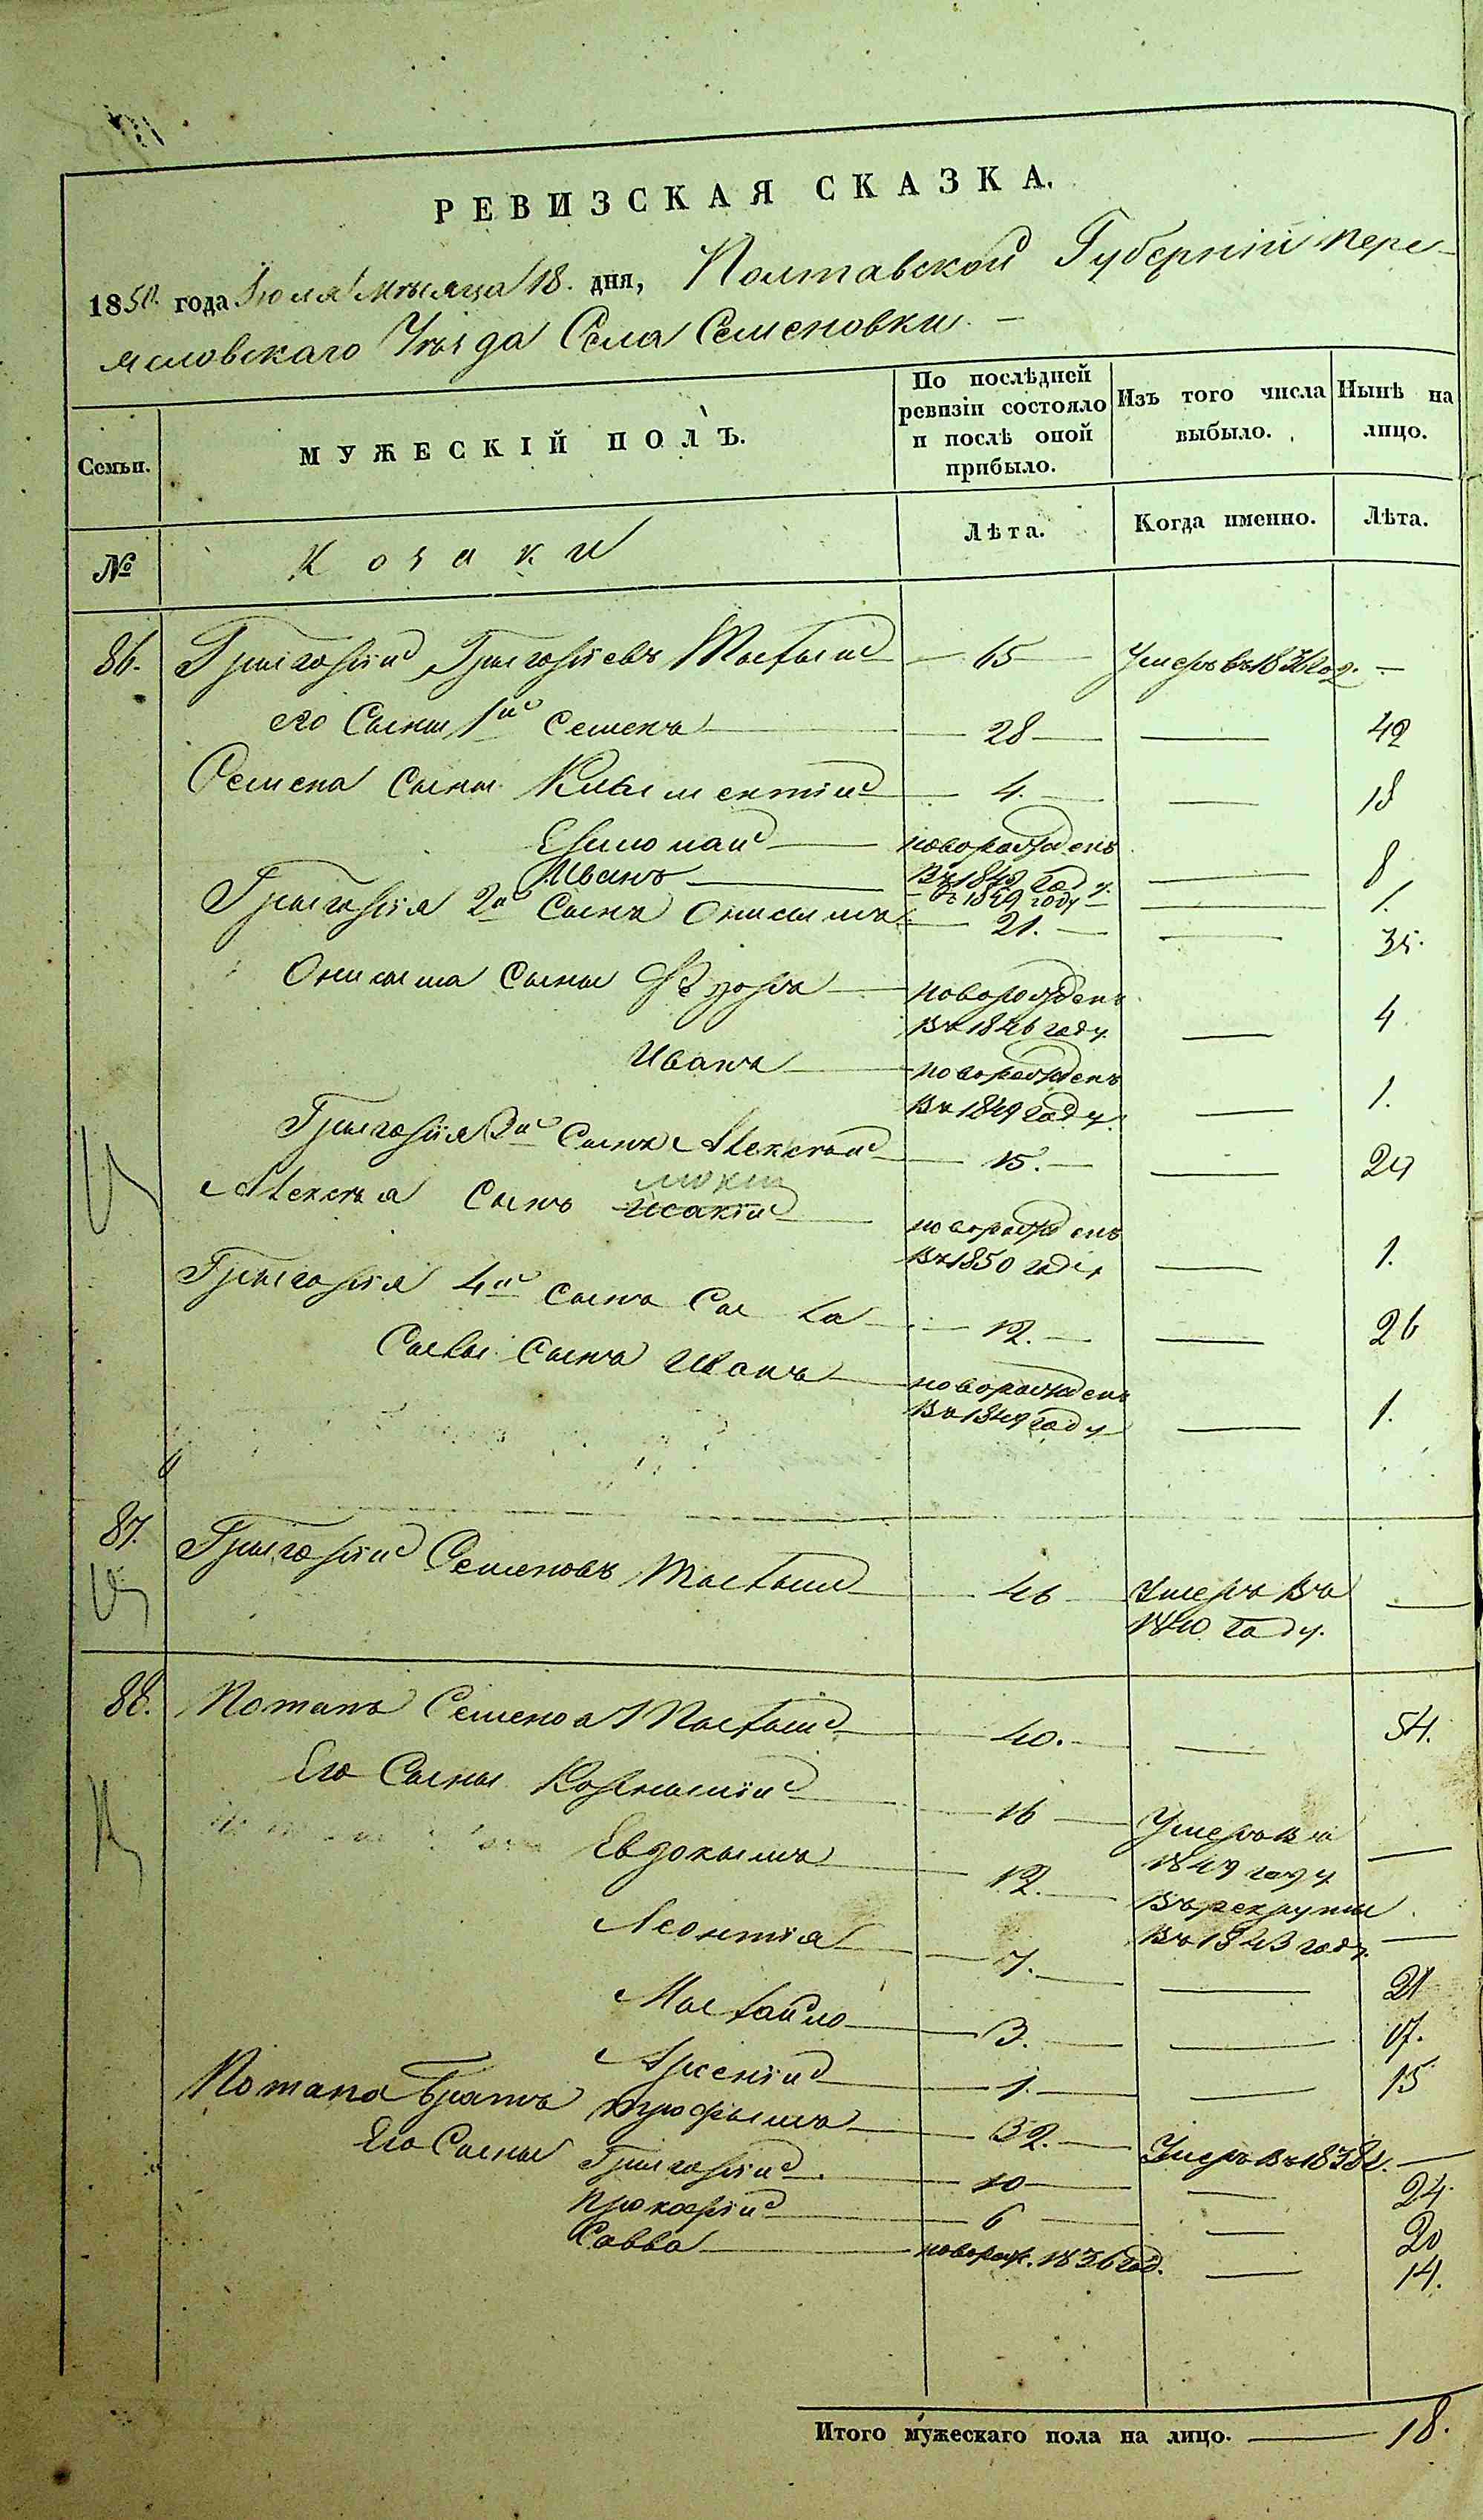 РЕВИЗСКАЯ СКАЗКА.
1850. года Іюля Мѣсяца 18. дня, Полтавской Губерніи Пере-
яславскаго Уѣзда Села Семеновки. —
Семьи.
МУЖЕСКІЙ ПОЛЪ.
По послѣдней ревизіи состояло и послѣ оной прибыло.
Изъ того числа выбыло.
Нынѣ на лицо.
№
Козаки
Лѣта.
Когда именно.
Лѣта.
86. Григорій Григорьевъ — 65 — Умеръ въ 1836 год. —
его Сыны 1й Семенъ — 28 — — 42
Семена Сыны Климентій — 4. — — 18
новорожденъ
въ 1842 году. — 8
Иванъ — въ 1849 году — — 1.
Григорія 2й Сынъ Онисимъ — 21. — — 35.
Онисима Сыны Ѳедоръ — новорожденъ
въ 1846 году. — 4
Иванъ — новорожденъ
въ 1849 году. — 1.
Григорія 3й Сынъ Алексѣй — 15. — — 29
Алексѣя Сынъ Исакій — новорожденъ
въ 1850 году — 1.
Григорія 4й Сынъ Сава — 12. — — 26
Савы Сынъ Иванъ — новорожденъ
въ 1849 году — 1.
87. Григорій Семеновъ — 46 — Умеръ въ —
1840 году.
88. Потапъ Семеновъ — 40. — — 54.
Его Сыны Корнилій — 16 — Умеръ въ
1849 году —
Евдокимъ — 12. — Въ рекруты
въ 1843 году. —
Леонтія — 7. — — 21
Михайло — 3. — — 17.
Арсеній — 1. — — 15
Потапа Братъ Трофимъ — 32. — Умеръ въ 1838 г. —
Его Сыны Григорій — 10 — — 24.
Прокофій — 6 — — 20
Савва — новорож. 1836 год. — 14.
Итого мужескаго пола на лицо. — 18.